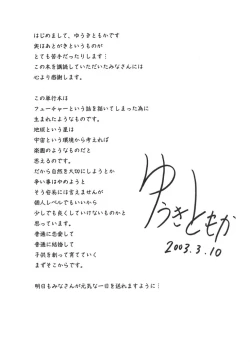 はじめまして、ゆうきともかです
実はあとがきというものが
とても苦手だったりします…
この本を購読していただいたみなさんには
心より感謝します。
この単行本は
フューチャーという話を描いてしまった為に
生まれたようなものです。
地球という星は
宇宙という環境から考えれば
楽園のようなものだと
思えるのです。
だから自然を大切にしようとか
争い事はやめようと
そう容易には言えませんが
個人レベルでもいいから
少しでも良くしていけないものかと
思っています。
普通に恋愛して
普通に結婚して
子供を創って育てていく
まずそこからです。
明日もみなさんが元気な一日を送れますように…
ゆうきともか
2003.3.10